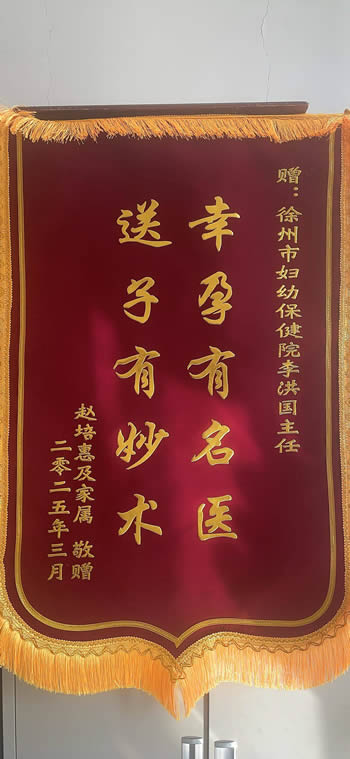 赠：徐州市妇幼保健院李洪国主任
幸孕有名医
送子有妙术
赵培惠及家属 敬赠
二零二五年三月